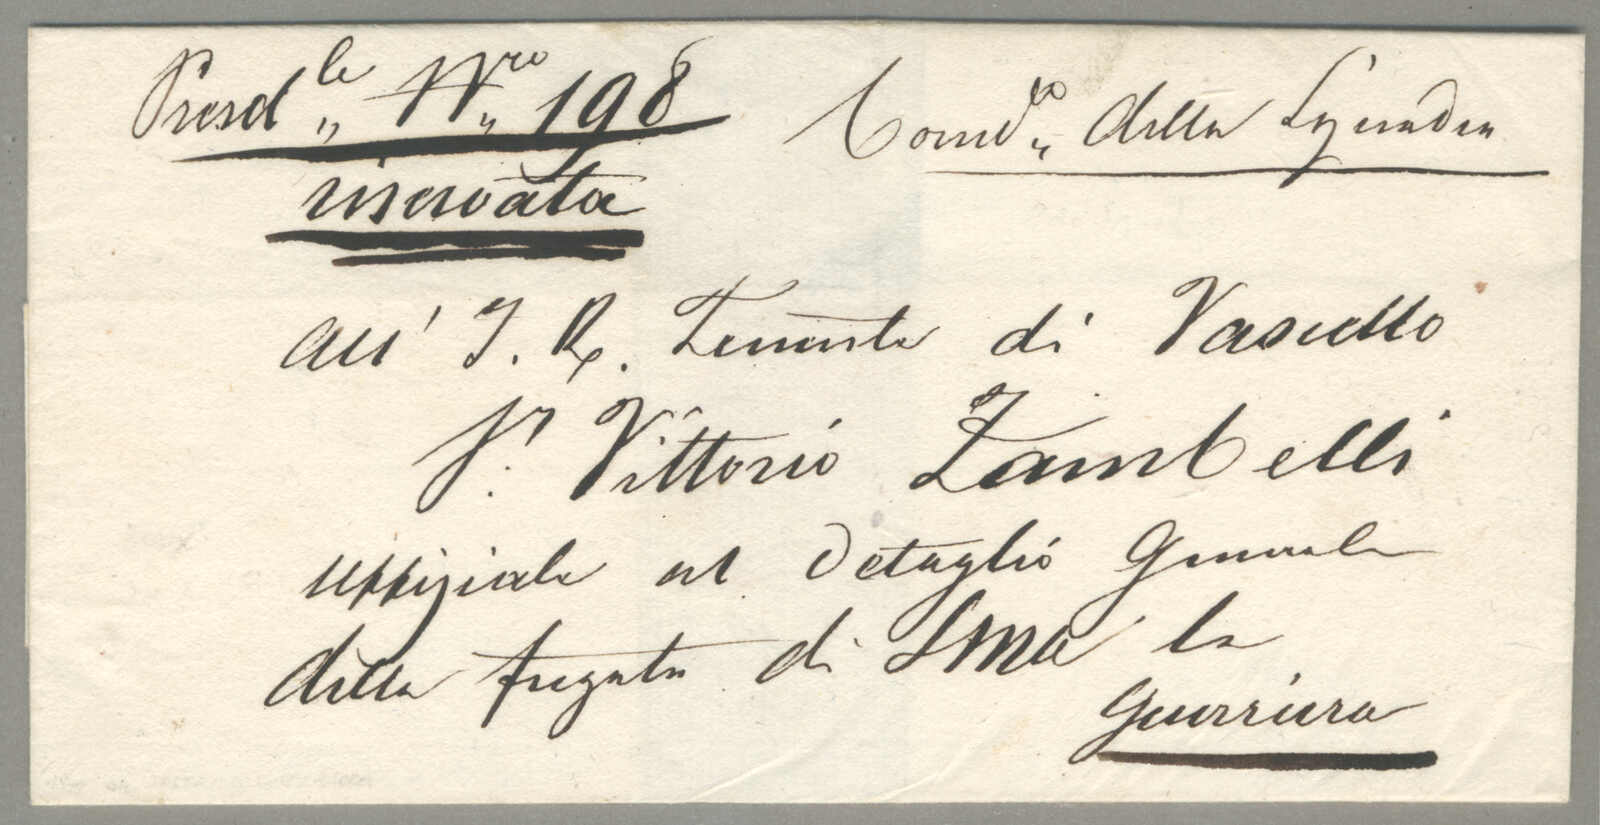 Presd.le Nro 198
riservata
Comdo della Squadra
All' I. R. Tenente di Vascello
Sr. Vittorio Zambelli
uffiziale al Detaglio Generale
della fregata di SMa la
Guerriera